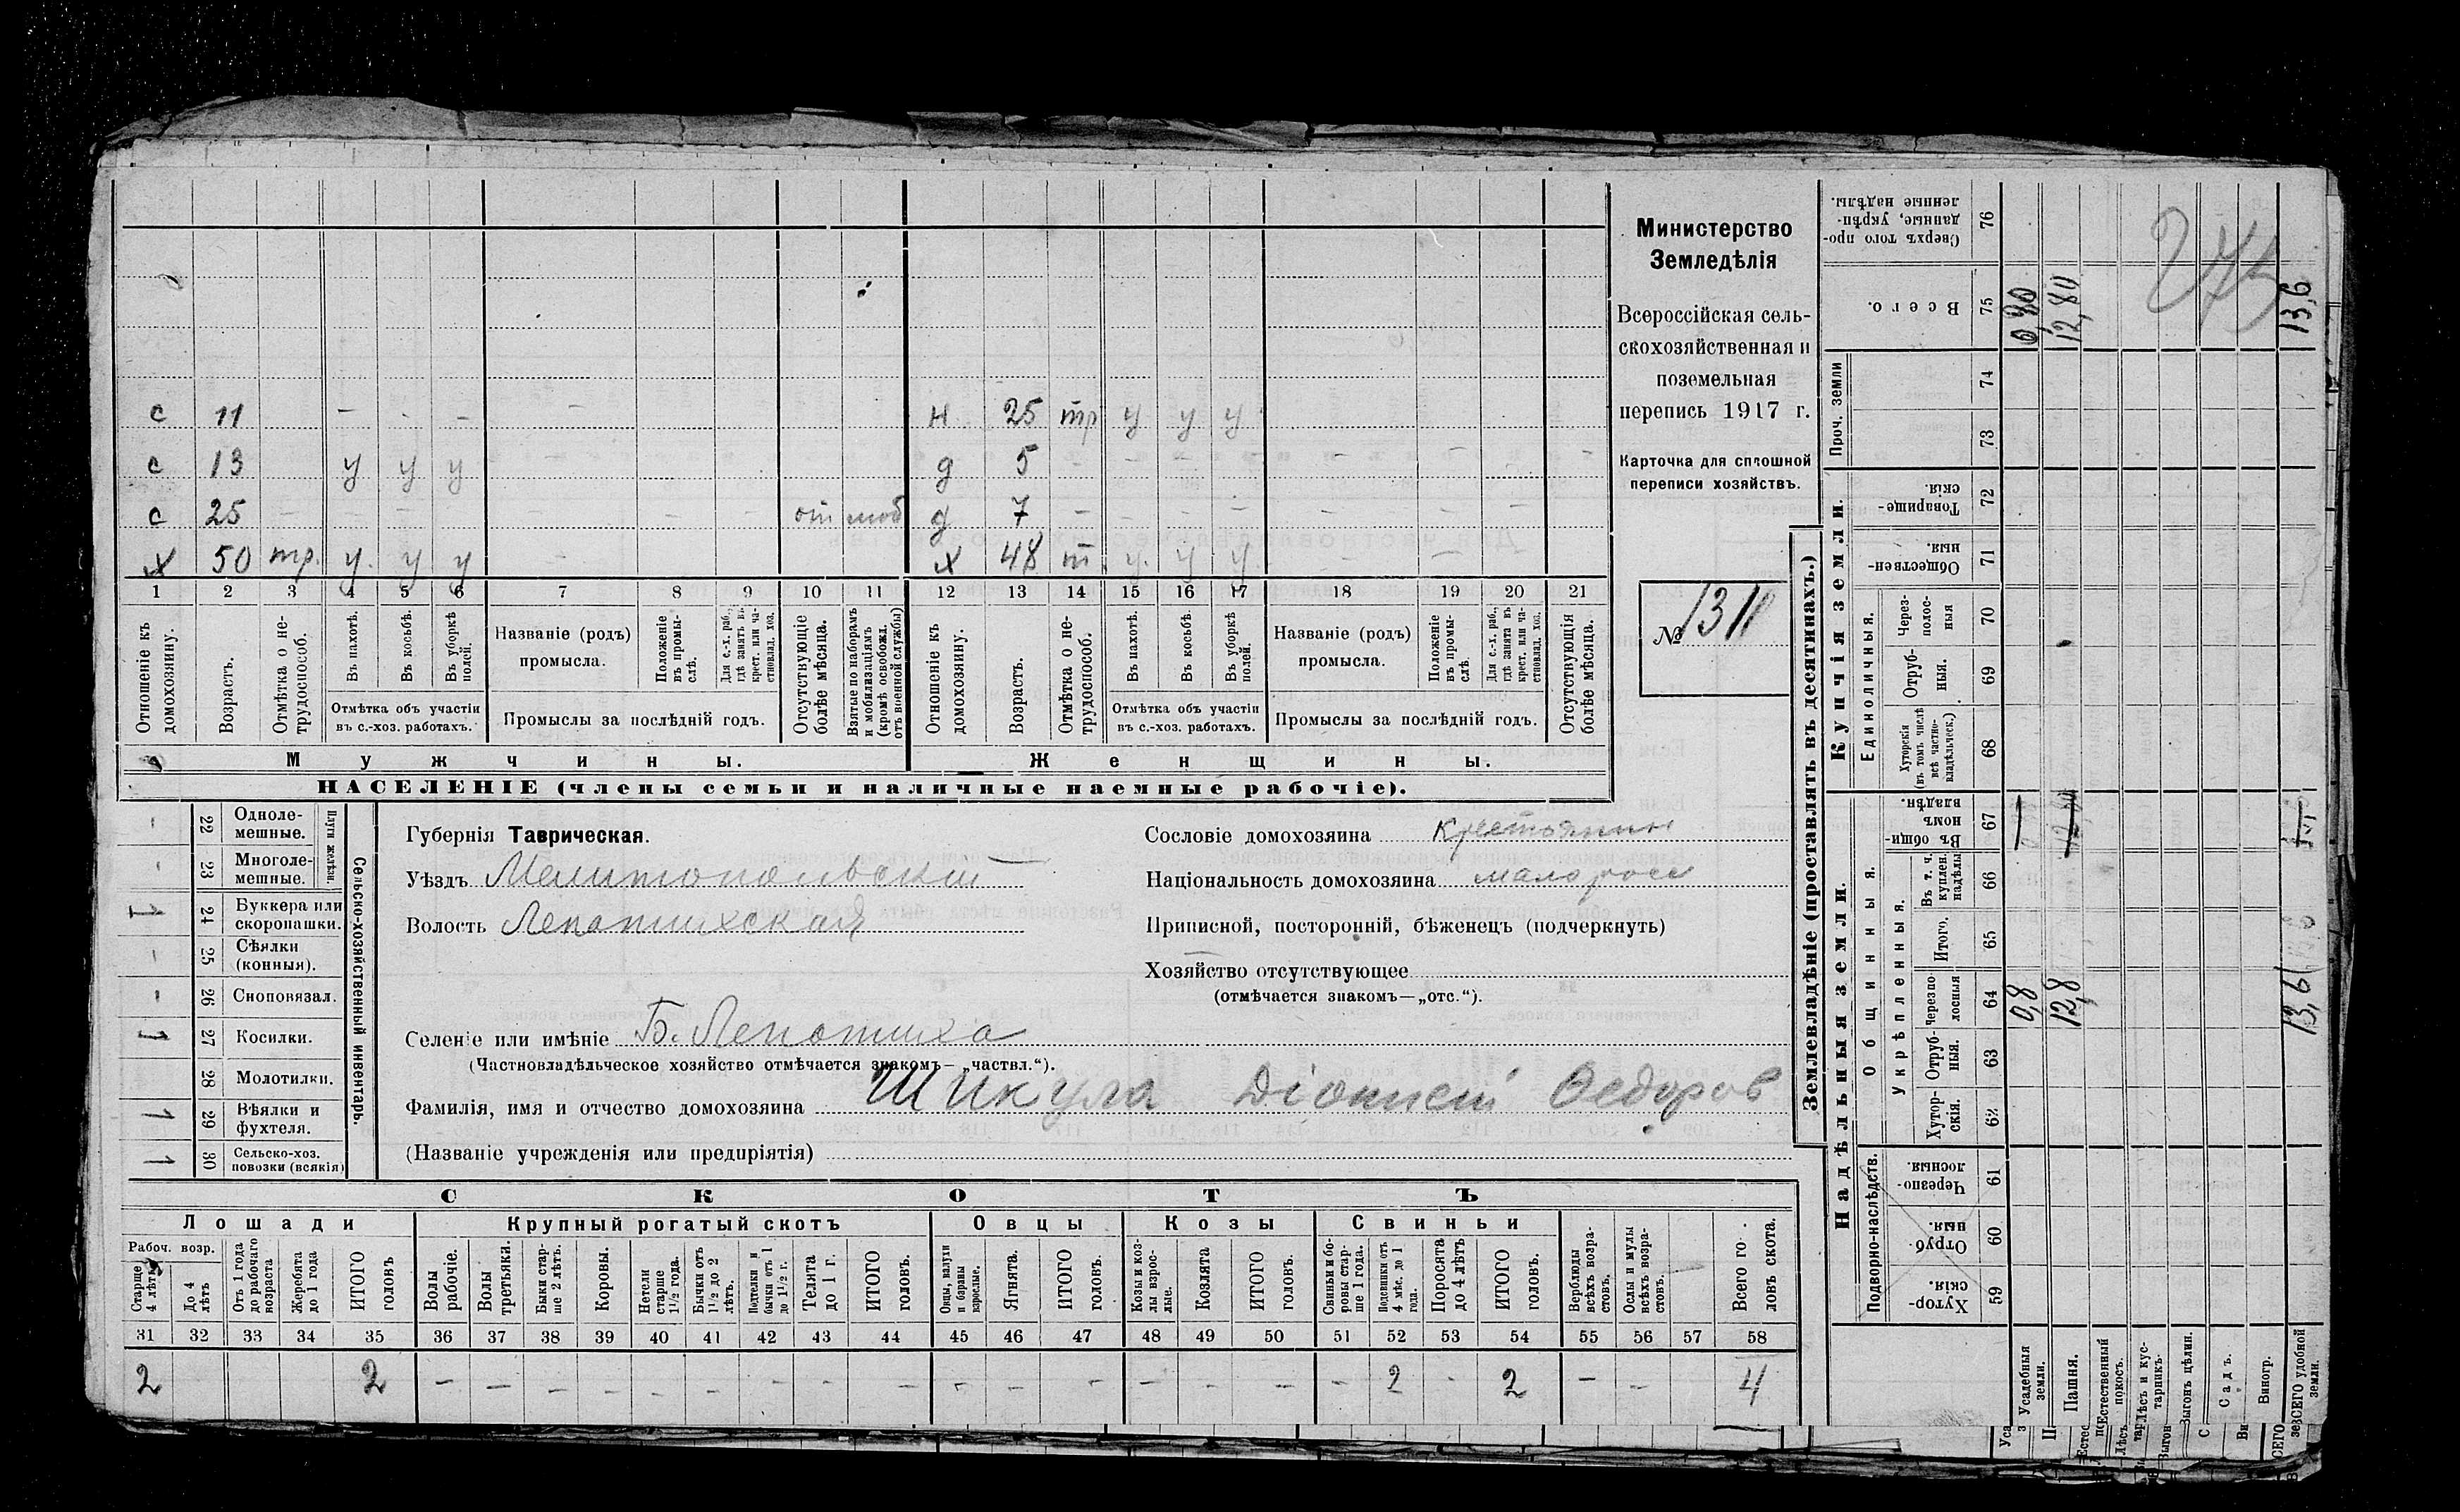 с 11 - - - - н 25 тр у у у
с 13 у у у д 5 - - - - - - - -
с 25 - - - - - - - от моб д 7 - - - - - - -
х 50 тр. у. у у - х 48 т. у. у у. - -
1 2 3 4 5 6 7 8 9 10 11 12 13 14 15 16 17 18 19 20 21
Отношеніе къ домохозяину.
Возрастъ.
Отмѣтка о не-трудоспособ.
Въ пахотѣ.
Въ косьбѣ.
Въ уборкѣ полей.
Отмѣтка объ участіи
въ с.-хоз. работахъ.
Названіе (родъ)
промысла.
Положеніе въ промы-слѣ.
Для с.-х. раб., гдѣ занятъ въ крест. или ча-стновлад. хоз.
Промыслы за послѣдній годъ.
Отсутствующіе болѣе мѣсяца.
Взятые по наборамъ и мобилизаціямъ (кромѣ освобожд. отъ военной службы)
Отношеніе къ домохозяину.
Возрастъ.
Отмѣтка о не-трудоспособ.
Въ пахотѣ.
Въ косьбѣ.
Въ уборкѣ полей.
Отмѣтка объ участіи
въ с.-хоз. работахъ.
Названіе (родъ)
промысла.
Положеніе въ промы-слѣ.
Для с.-х. раб., гдѣ занята въ крест. или ча-стновлад. хоз.
Промыслы за послѣдній годъ.
Отсутствующія болѣе мѣсяца.
Мужчины. Женщины.
НАСЕЛЕНІЕ (члены семьи и наличные наемные рабочіе).
Министерство
Земледѣлія
Всероссійская сель-
скохозяйственная и
поземельная
перепись 1917 г.
Карточка для сплошной
переписи хозяйствъ.
№ 1311
Сельско-хозяйственный инвентарь.
Плуги желѣзн.
- 22 Одноле-мешные.
- 23 Многоле-мешные.
1 24 Буккера или скоропашки.
- 25 Сѣялки (конныя).
- 26 Сноповязал.
1 27 Косилки.
28 Молотилки.
1 29 Вѣялки и фухтеля.
1 30 Сельско-хоз. повозки (всякія)
Губернія Таврическая.
Уѣздъ Мелитопольскій
Волость Лепатихская
Сословіе домохозяина крестьянин
Національность домохозяина малоросс
Приписной, посторонній, бѣженецъ (подчеркнуть)
Хозяйство отсутствующее
(отмѣчается знакомъ—„отс.“).
Селеніе или имѣніе Б. Лепатиха
(Частновладѣльческое хозяйство отмѣчается знакомъ—„частвл.“).
Фамилія, имя и отчество домохозяина Шикула Діонисій Федоров
(Названіе учрежденія или предпріятія)
СКОТЪ
Лошади Крупный рогатый скотъ Овцы Козы Свиньи
Рабоч. возр.
Старше 4 лѣтъ
До 4 лѣтъ
Отъ 1 года до рабочаго возраста
Жеребята до 1 года
ИТОГО головъ
Волы рабочіе.
Волы третьяки.
Быки стар-ше 2 лѣтъ.
Коровы.
Нетели старше 1½ года.
Бычки отъ 1½ до 2 лѣтъ.
Подтелки и бычки отъ 1 до 1½ г.
Телята до 1 г.
ИТОГО головъ.
Овцы, валухи и бараны взрослые.
Ягнята.
ИТОГО головъ.
Козы и коз-лы взрос-лые.
Козлята
ИТОГО головъ.
Свиньи и бо-ровы стар-ше 1 года.
Подсвинки отъ 4 мѣс. до 1 года.
Поросята до 4 лѣтъ
ИТОГО головъ.
Верблюды всѣхъ возра-стовъ.
Ослы и мулы всѣхъ возра-стовъ.
Всего го-ловъ скота.
31 32 33 34 35 36 37 38 39 40 41 42 43 44 45 46 47 48 49 50 51 52 53 54 55 56 57 58
2 2 - - - - - - - - - - - - - - - - 2 - 2 - - 4
Землевладѣніе (проставлять въ десятинахъ.)
Надѣльныя земли. Купчія земли. Проч. земли
Подворно-наслѣдств.
Общинныя.
Укрѣпленныя.
Единоличныя.
Хутор-скія. 59
Отруб-ныя. 60
Черезпо-лосныя. 61
Хутор-скія. 62
Отруб-ныя. 63
Черезпо-лосныя 64 0,8 12,8 13,6
Итого. 65
Въ т. ч. куплен. надѣлы 66
Въ общи-номъ владѣн. 67
Хуторскія (въ томъ числѣ всѣ частно-владѣльческ.) 68
Отруб-ныя. 69
Через-полос-ныя 70
Обществен-ныя. 71
Товарище-скія. 72
73
74
Всего. 75 0,80 12,80 13,6
Сверхъ того про-данные, укрѣп-ленные надѣлы. 76
Усадебныя земли.
Пашня.
Естественный покосъ.
Лѣсъ и кус-тарникъ.
Выгонъ цѣлин.
Садъ.
Виногр.
ВСЕГО удобной земли.